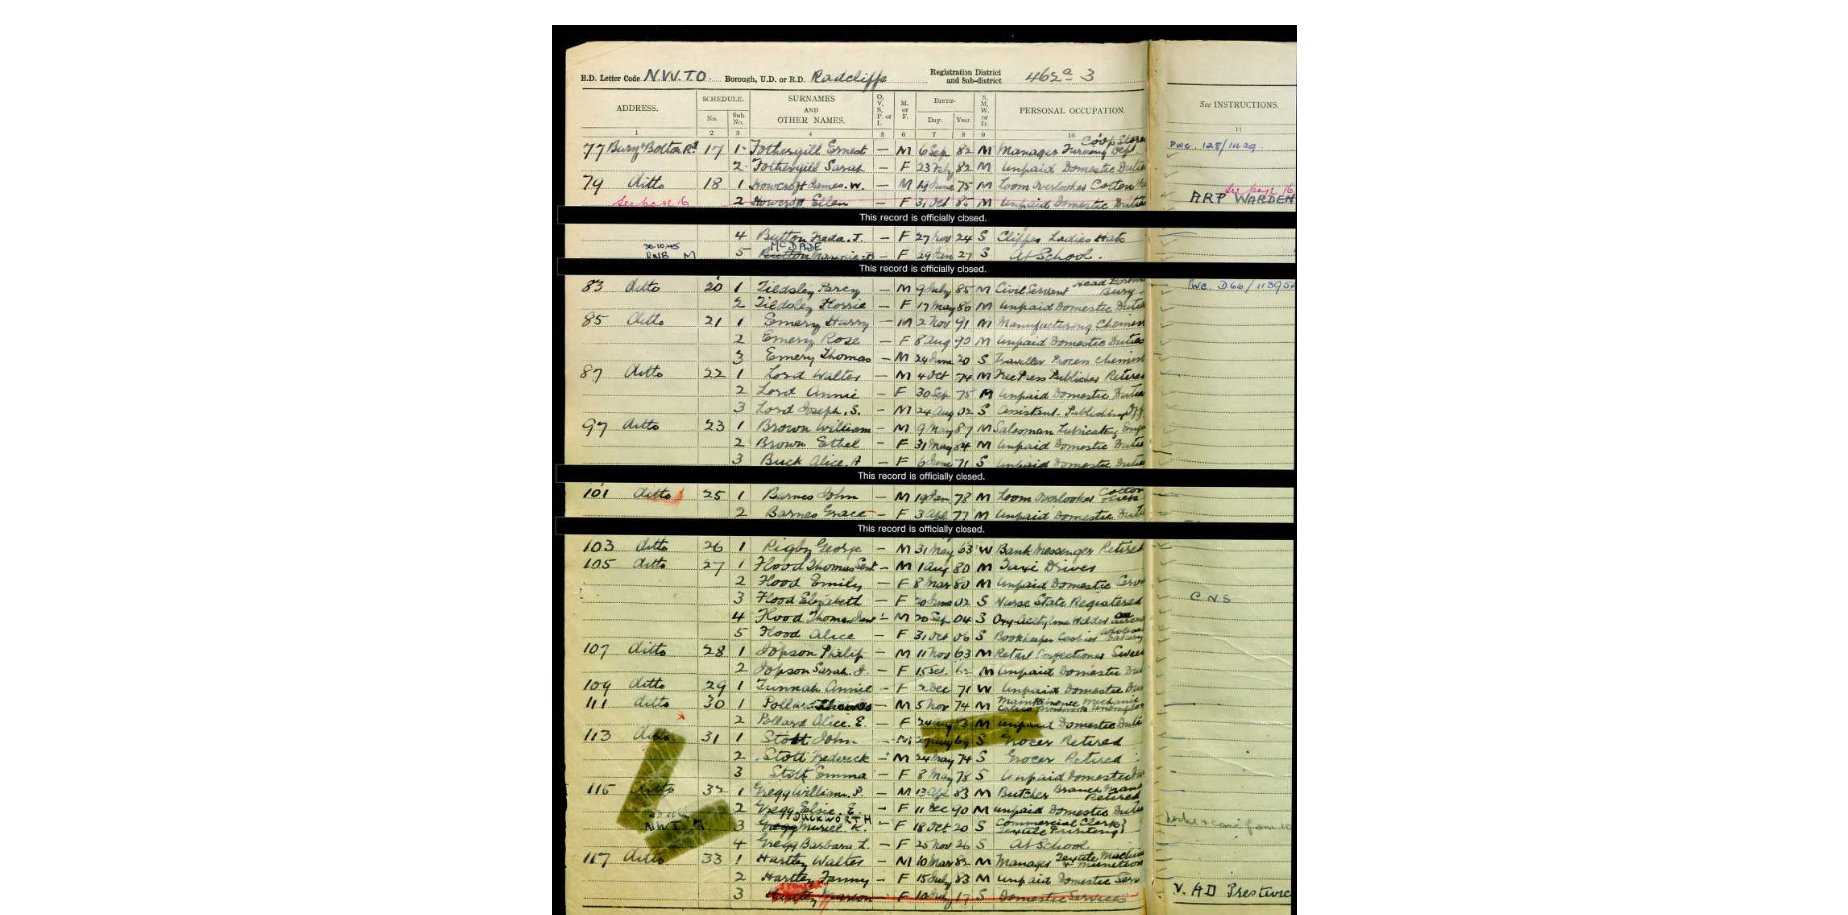 E.D. Letter Code N.W.T.O. Borough, U.D. or R.D. Radcliffe Registration District and Sub-district 462a 3
ADDRESS. SCHEDULE. No. Sub. No. SURNAMES AND OTHER NAMES. O. V. S. P. or I. M. or F. Birth- Day. Year. S. M. W. or D. PERSONAL OCCUPATION. See INSTRUCTIONS.
1 2 3 4 5 6 7 8 9 10 11
77 Bury & Bolton Rd 17 1 Fothergill Ernest — M 6 Sep 82 M Manager Co'op Store
2 Fothergill Sarah — F 23 Feb 82 M Unpaid Domestic Duties
79 ditto 18 1 Howcroft James. W. — M 19 June 75 M Loom Overlooker Cotton
see page 16 2 Howcroft Ellen — F 31 Oct M Unpaid Domestic Duties see page 16 ARP WARDEN
This record is officially closed.
4 Button — F 27 Nov 24 S Ladies Hats
McDADE
5 Button — F 29 Jan 27 S At School.
This record is officially closed.
83 ditto 20 1 Tildsley Percy — M 9 July 85 M Civil Servant Bury
2 Tildsley Florrie — F 17 May 86 M Unpaid Domestic Duties
85 ditto 21 1 Emery Harry — M 2 Nov 91 M Manufacturing Chemist
2 Emery Rose — F 8 Aug 90 M Unpaid Domestic Duties
3 Emery Thomas — M 24 June 20 S Traveller Process Chemist
87 ditto 22 1 Lord Walter — M 4 Oct 74 M Publisher Retired
2 Lord Annie — F 30 Sep 75 M Unpaid Domestic Duties
3 Lord Joseph. S. — M 24 Aug 02 S Assistant Publishing
97 ditto 23 1 Brown William — M 9 May 87 M Salesman Lubricating
2 Brown Ethel — F 31 May 84 M Unpaid Domestic Duties
3 Buck Alice. A — F 6 June 71 S Unpaid Domestic Duties
This record is officially closed.
101 ditto 25 1 Barnes John — M 19 Jan 78 M Loom Overlooker Cotton
2 Barnes Grace — F 3 Apl 77 M Unpaid Domestic Duties
This record is officially closed.
103 ditto 26 1 Rigby George — M 31 May 63 W Bank Messenger Retired
105 ditto 27 1 Flood Thomas — M 1 Aug 80 M Taxi Driver
2 Flood Emily — F 8 Mar 80 M Unpaid Domestic
3 Flood Elizabeth — F 02 S Nurse State Registered CNS
4 Flood Thomas — M 20 Sep 04 S Oxy-Acetylene Welder
5 Flood Alice — F 31 Oct 06 S Bookkeeper Cashier
107 ditto 28 1 Jopson Philip — M 11 Nov 63 M Retail Confectioner Sweets
2 Jopson Sarah. J. — F 15 M Unpaid Domestic Duties
109 ditto 29 1 Tunnah Annie — F 2 Dec 71 W Unpaid Domestic Duties
111 ditto 30 1 Pollard — M 5 Nov 74 M Maintenance Mechanic
2 Pollard Alice. E. — F M Unpaid Domestic Duties
113 ditto 31 1 Stott John — M S Grocer Retired
2 Stott Frederick — M 24 May 74 S Grocer Retired
3 Stott Emma — F 8 May 78 S Unpaid Domestic
115 ditto 32 1 Gregg William. P. — M 83 M Butcher Branch Retired
2 Gregg Elsie. E. — F 11 Dec 90 M Unpaid Domestic Duties
DUCKWORTH
3 Gregg Muriel K. — F 18 Oct 20 S Commercial Clerk Textile Printing
4 Gregg Barbara L. — F 25 Nov 26 S At School
117 ditto 33 1 Hartley Walter — M 10 Mar 82 M Manager
2 Hartley Fanny — F 15 July 83 M Unpaid Domestic
3 Hartley Marion — F 10 July 17 S Domestic Services V.AD